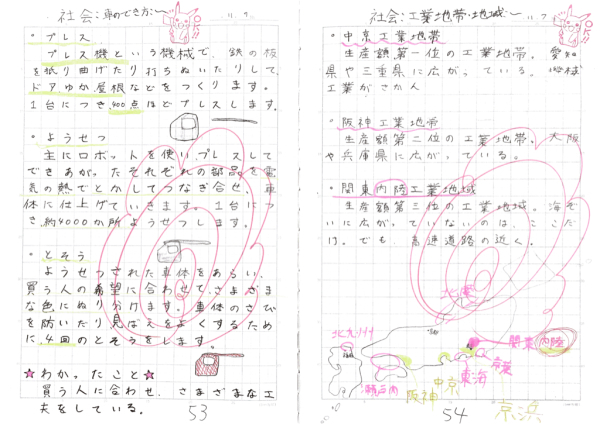 社会:車のでき方:~
11.9.
・プレス
プレス機という機械で、鉄の板
を折り曲げたり打ちぬいたりして、
ドア、ゆか、屋根などをつくります。
1台につき、400点ほどプレスします。
・ようせつ
主にロボットを使い、プレスして
できあがったそれぞれの部品を電
気の熱でとかしてつなぎ合せ、車
体に仕上げていきます。1台につ
き、約4000か所ようせつします。
・とそう
ようせつされた車体をあらい、
買う人の希望に合わせて、さまざま
な色にぬり分けます。車体のさび
を防いだり、見ばえをよくするため
に、4回のとそうをします。
☆わかったこと☆
買う人に合わせ、さまざまな工
夫をしている。
53
社会:工業地帯・地域~
11.
・中京工業地帯
生産額第一位の工業地帯。愛知
県や三重県に広がっている。機械
工業がさかん
・阪神工業地帯
生産額第二位の工業地帯。大阪
や兵庫県に広がっている。
・関東内陸工業地域
生産額第三位の工業地域。海ぞ
いに広がっていないのは、ここだ
け。でも、高速道路の近く。
北陸
北九州
関東内陸
京葉
東海
瀬戸内
中京
阪神
54
京浜